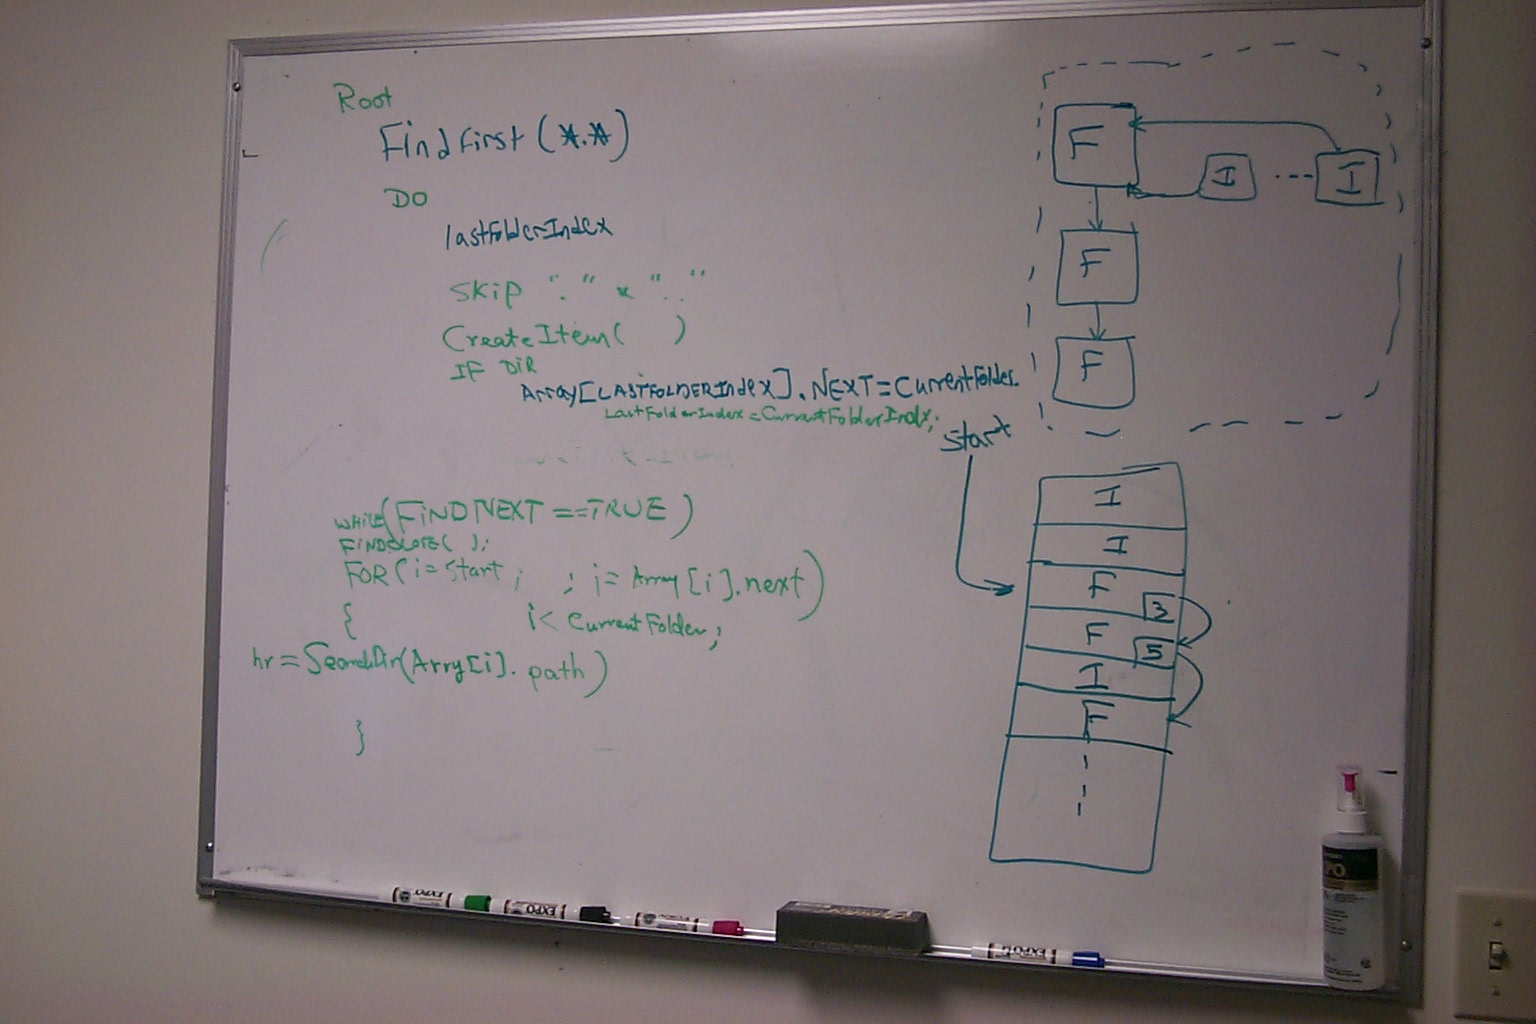 Root
FindFirst(*.*)
DO
lastFolderIndex
Skip "." & ".."
CreateItem( )
IF DIR
Array[LASTFOLDERIndex].NEXT=CurrentFolder.
LastFolderIndex=CurrentFolderIndx;
WHILE(FINDNEXT ==TRUE)
FINDCLOSE( );
FOR(i=Start; ; i= Array[i].next)
{ i< CurrentFolder;
hr=SearchDir(Array[i].path)
}
F
I --- I
F
F
Start
I
I
F 3
F 5
I
F
EXPO
EXPO
EXPO